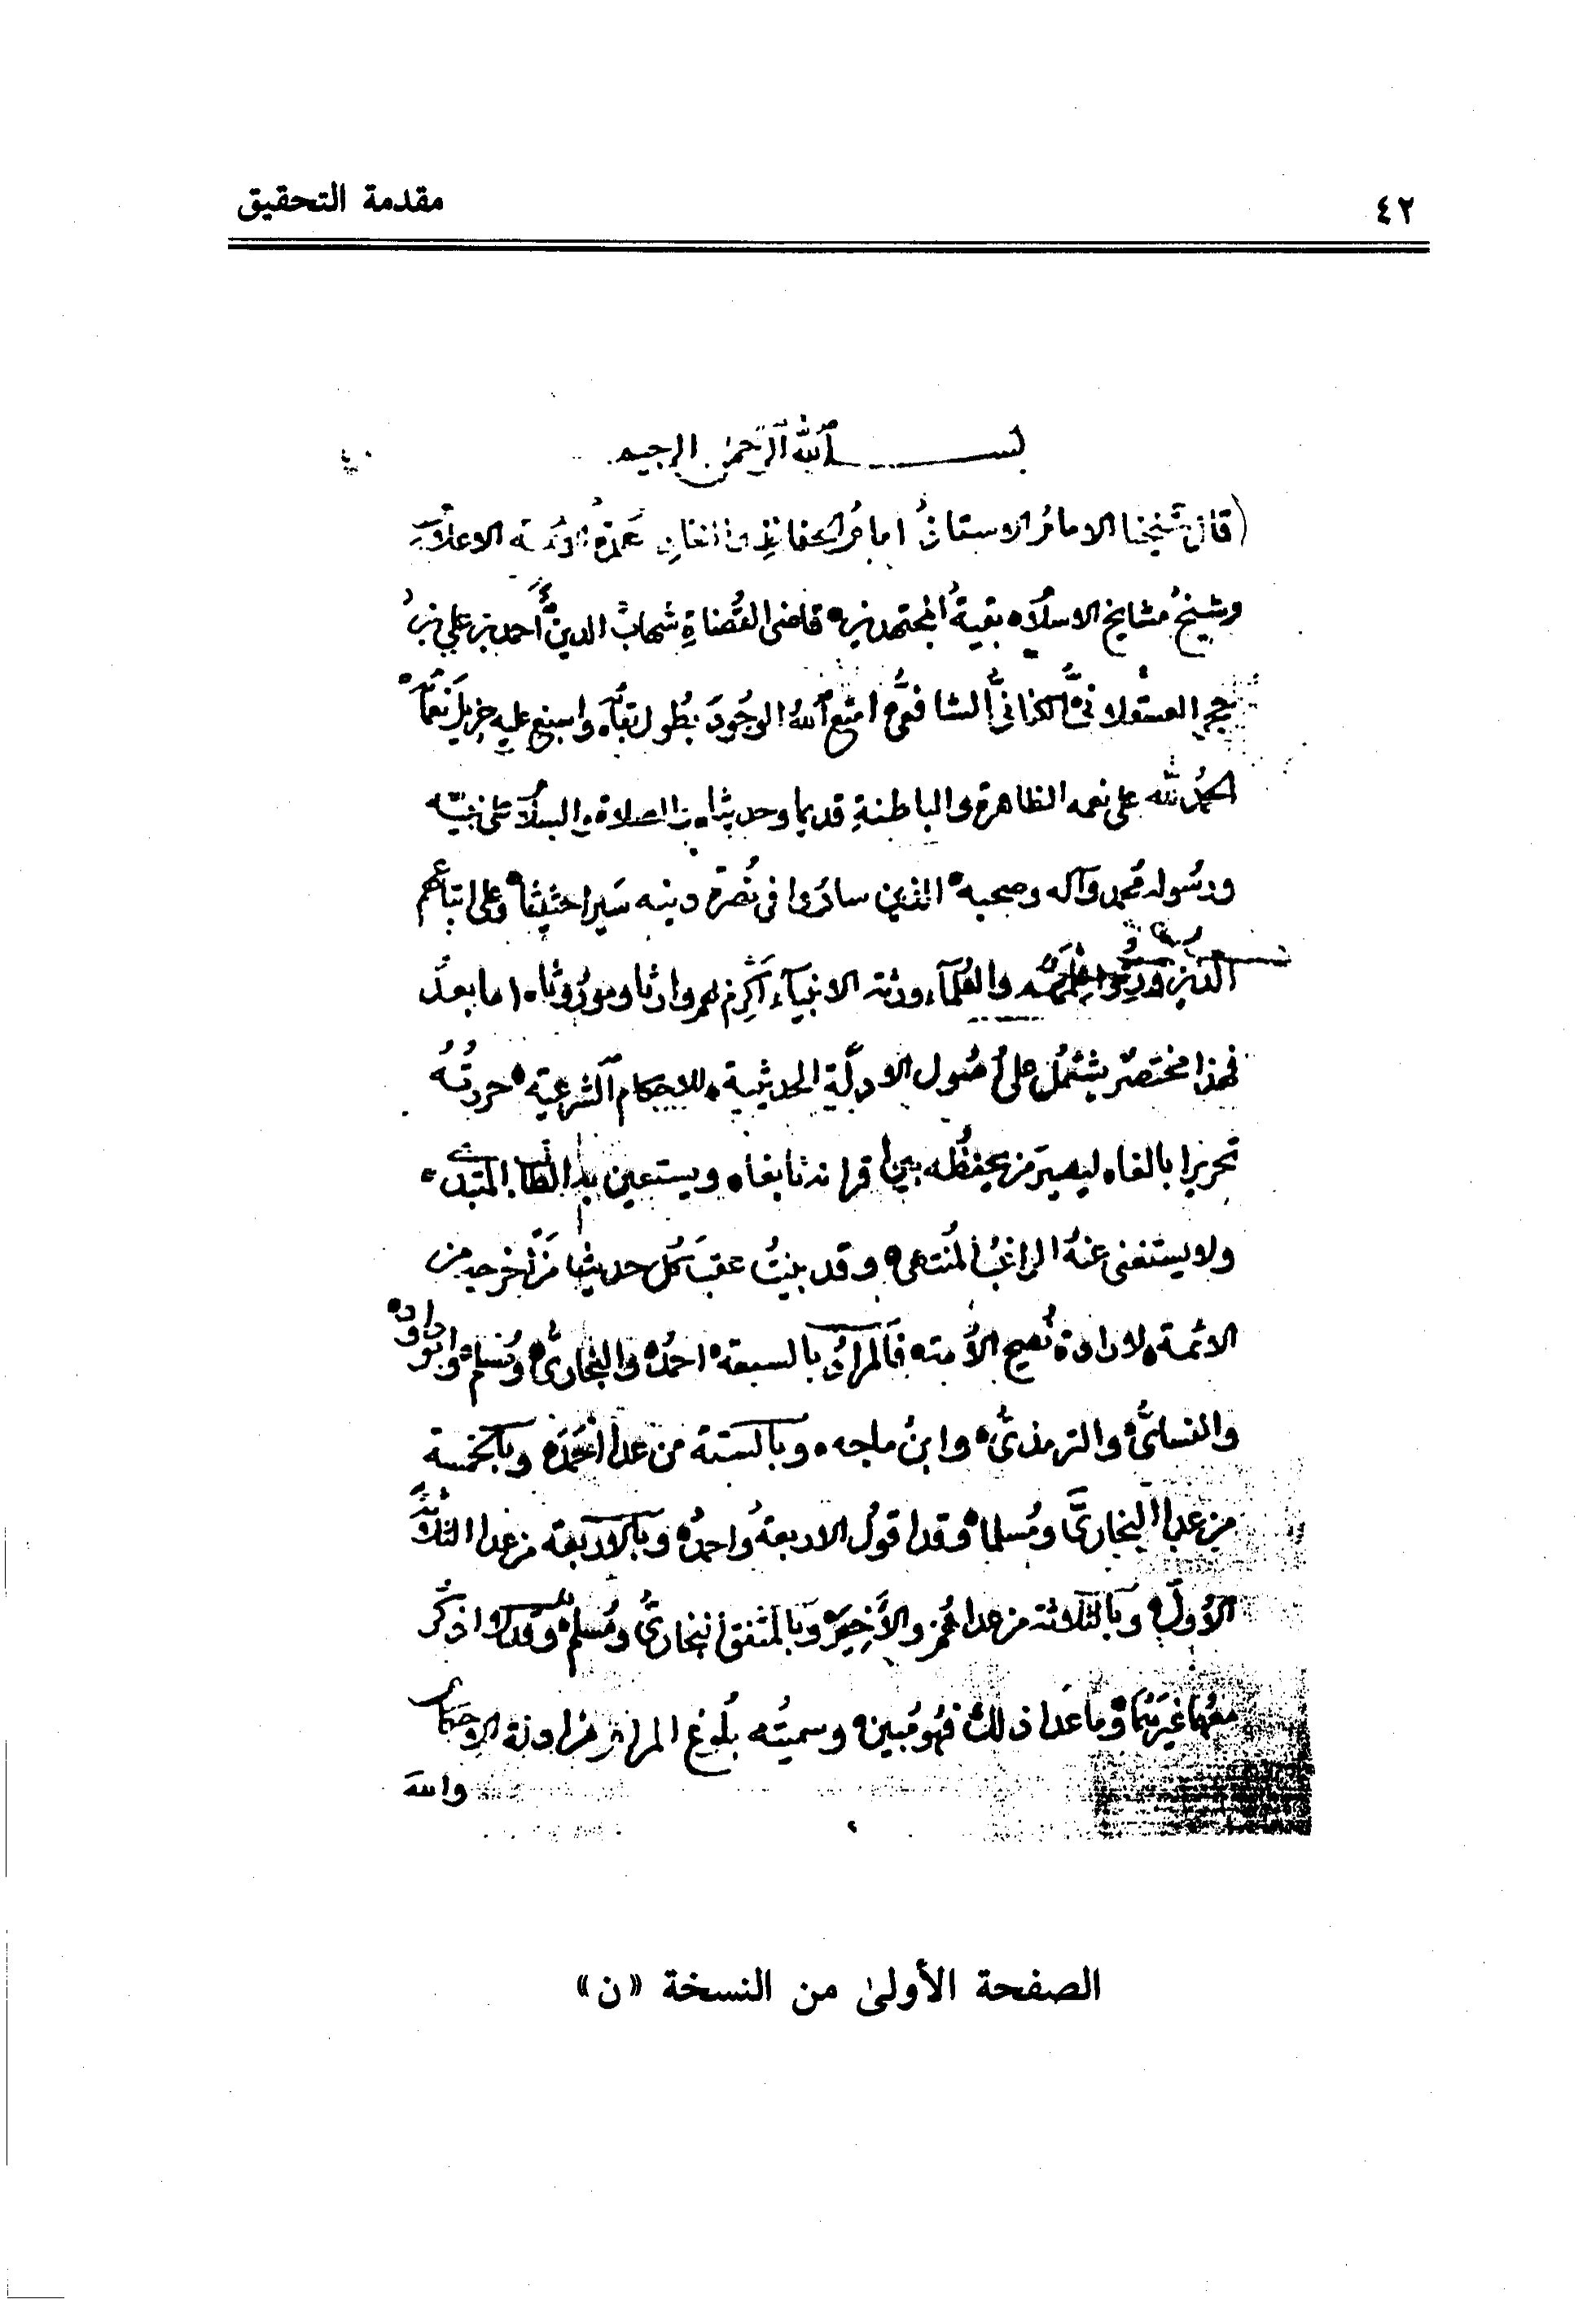 ٤٢
مقدمة التحقيق
بسم الله الرحمن الرحيم
قال شيخنا الامام الاستاذ امام الحفاظ عمدة الاعلام
وشيخ مشايخ الاسلام بقية المجتهدين قاضى القضاة شهاب الدين أحمد بن علي بن
حجر العسقلانى الكنانى الشافعى امتع الله الوجود بطول بقاه واسبغ عليه جزيل نعماه
الحمد لله على نعمه الظاهرة والباطنة قديما وحديثا والصلاة والسلام على نبيه
ورسوله محمد وآله وصحبه الذين ساروا فى نصرة دينه سيرا حثيثا وعلى اتباعهم
الذين ورثوا علمهم والعلماء ورثة الانبياء اكرم بهم وارثا وموروثا اما بعد
فهذا مختصر يشتمل على اصول الادلة الحديثية للاحكام الشرعية حررته
تحريرا بالغا ليصير من يحفظه بين اقرانه نابغا ويستعين به الطالب المبتدى
ولا يستغنى عنه الراغب المنتهى وقد بينت عقب كل حديث من اخرجه من
الائمة لارادة نصح الأمة فالمراد بالسبعة احمد والبخارى ومسلم وابو داود
والنسائى والترمذى وابن ماجه وبالستة من عدا احمد وبالخمسة
من عدا البخارى ومسلما وقد اقول الاربعة واحمد وبالاربعة من عدا الثلاثة
الأول وبالثلاثة من عداهم والأخير وبالمتفق البخارى ومسلم وقد لا اذكر
معهما غيرهما وما عدا ذلك فهو مبين وسميته بلوغ المرام من ادلة الاحكام
والله
الصفحة الأولى من النسخة «ن»